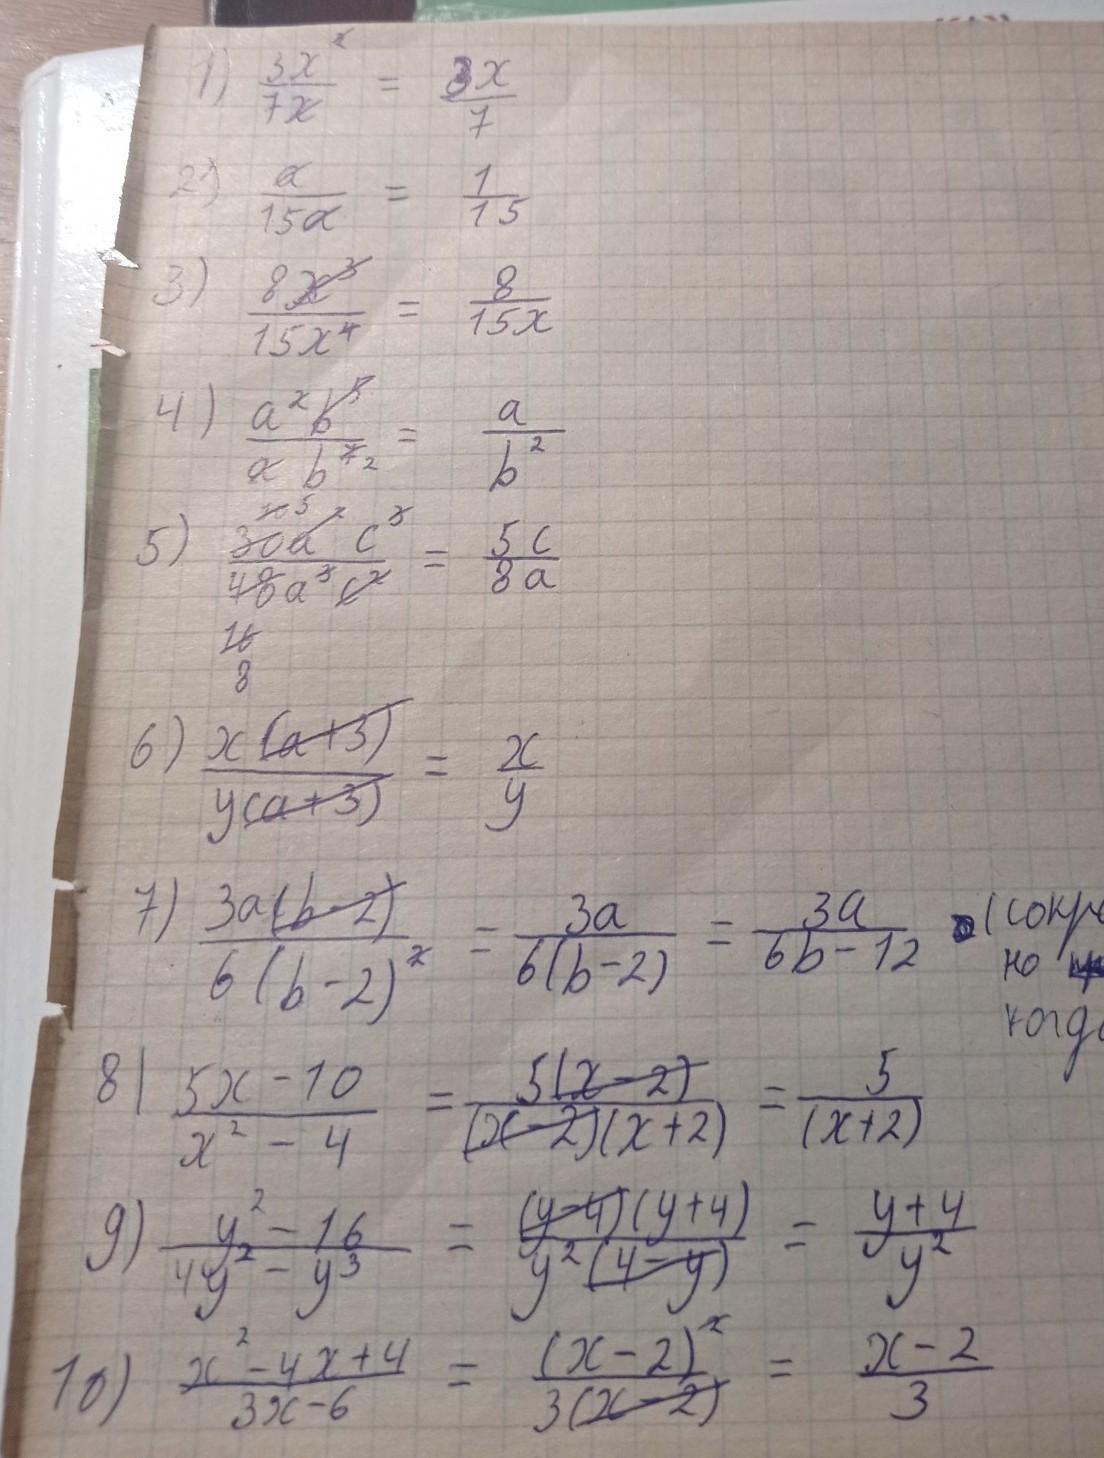 1) 3x²/7x = 3x/7
2) a/15a = 1/15
3) 8x³/15x⁴ = 8/15x
4) a²b⁵/ab⁷ 2 = a/b²
5) 10 5 30a² c³/48a³c² 16 8 = 5c/8a
6) x(a+3)/y(a+3) = x/y
7) 3a(b-2)/6(b-2)² = 3a/6(b-2) = 3a/6b-12
но
8) 5x-10/x²-4 = 5(x-2)/(x-2)(x+2) = 5/(x+2)
9) y²-16/4y²-y³ = (y-4)(y+4)/y²(4-y) = y+4/y²
10) x²-4x+4/3x-6 = (x-2)²/3(x-2) = x-2/3